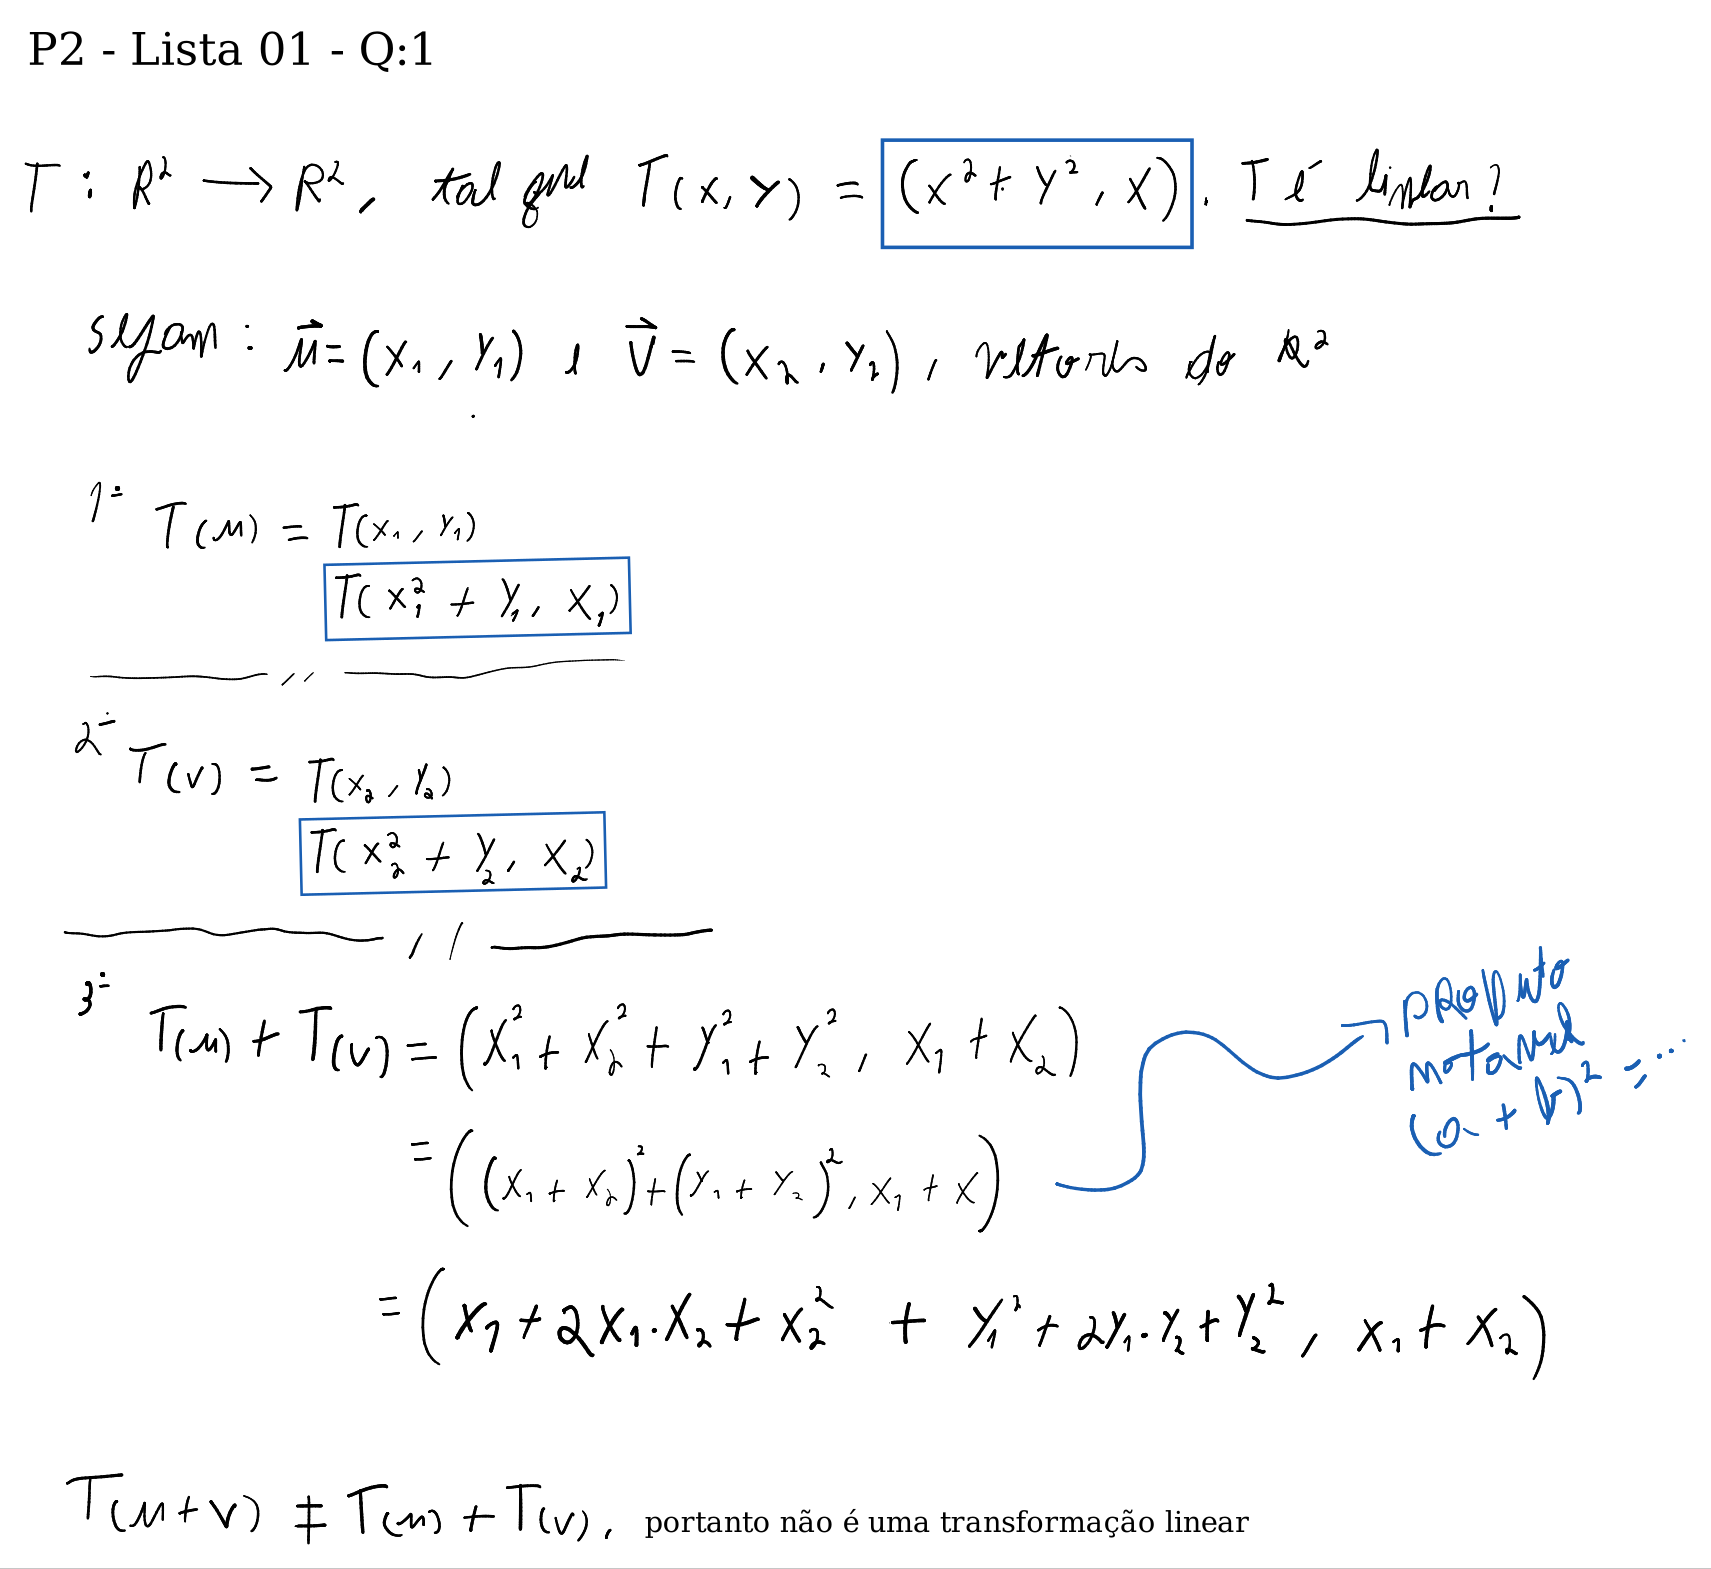 P2 - Lista 01 - Q:1
T : R² → R², tal que T(x, y) = (x² + y², x). T é linear?
sejam : u⃗ = (x₁, y₁) e v⃗ = (x₂, y₂), vetores do R²
1º T(u) = T(x₁, y₁)
T(x₁² + y₁, x₁)
2º T(v) = T(x₂, y₂)
T(x₂² + y₂, x₂)
3º T(u) + T(v) = (x₁² + x₂² + y₁² + y₂², x₁ + x₂)
= ((x₁ + x₂)² + (y₁ + y₂)², x₁ + x)
produto
notável
(a + b)² = ...
= (x₁ + 2x₁·x₂ + x₂² + y₁² + 2y₁·y₂ + y₂², x₁ + x₂)
T(u+v) ≠ T(u) + T(v), portanto não é uma transformação linear